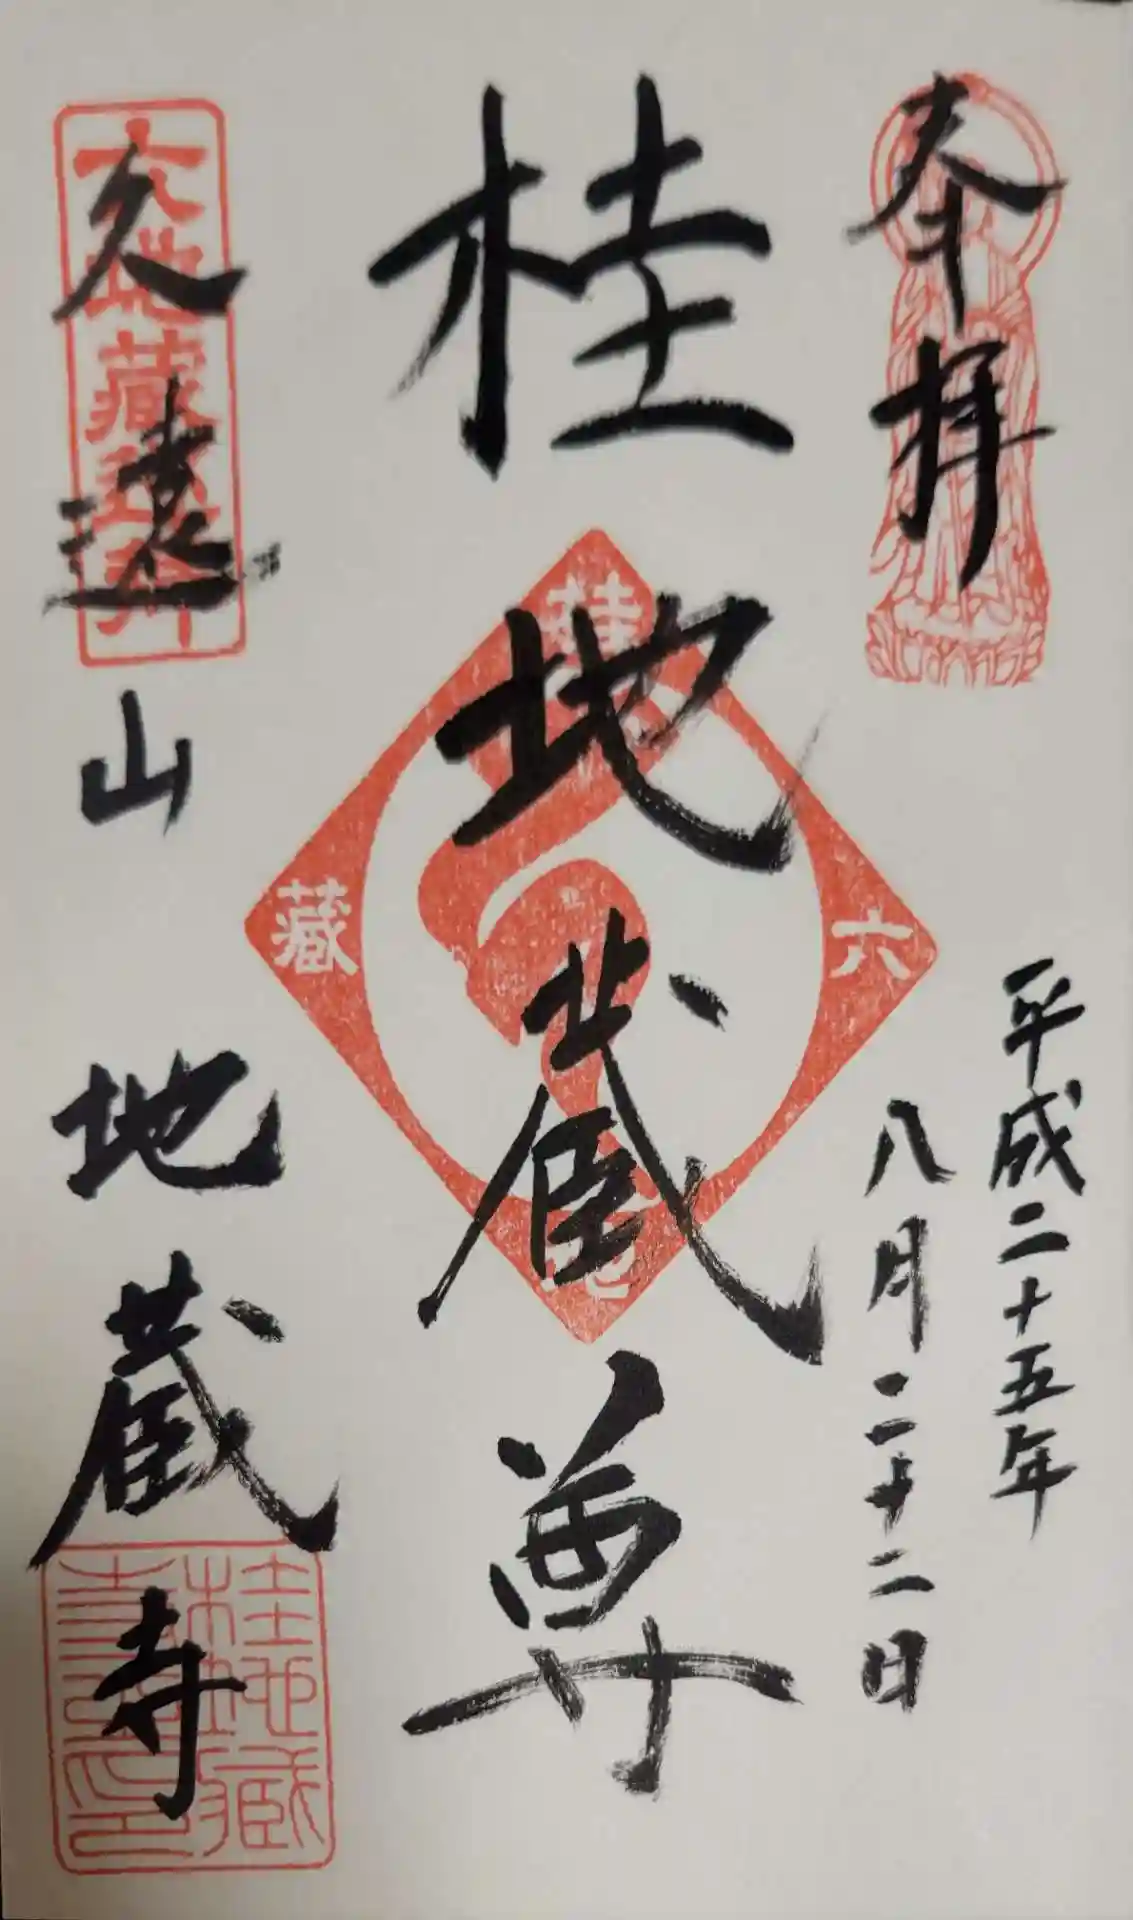 奉拝
平成二十五年
八月二十二日
桂地蔵尊
桂
六
地
藏
久遠山 地蔵寺
六地藏巡拜
桂地藏